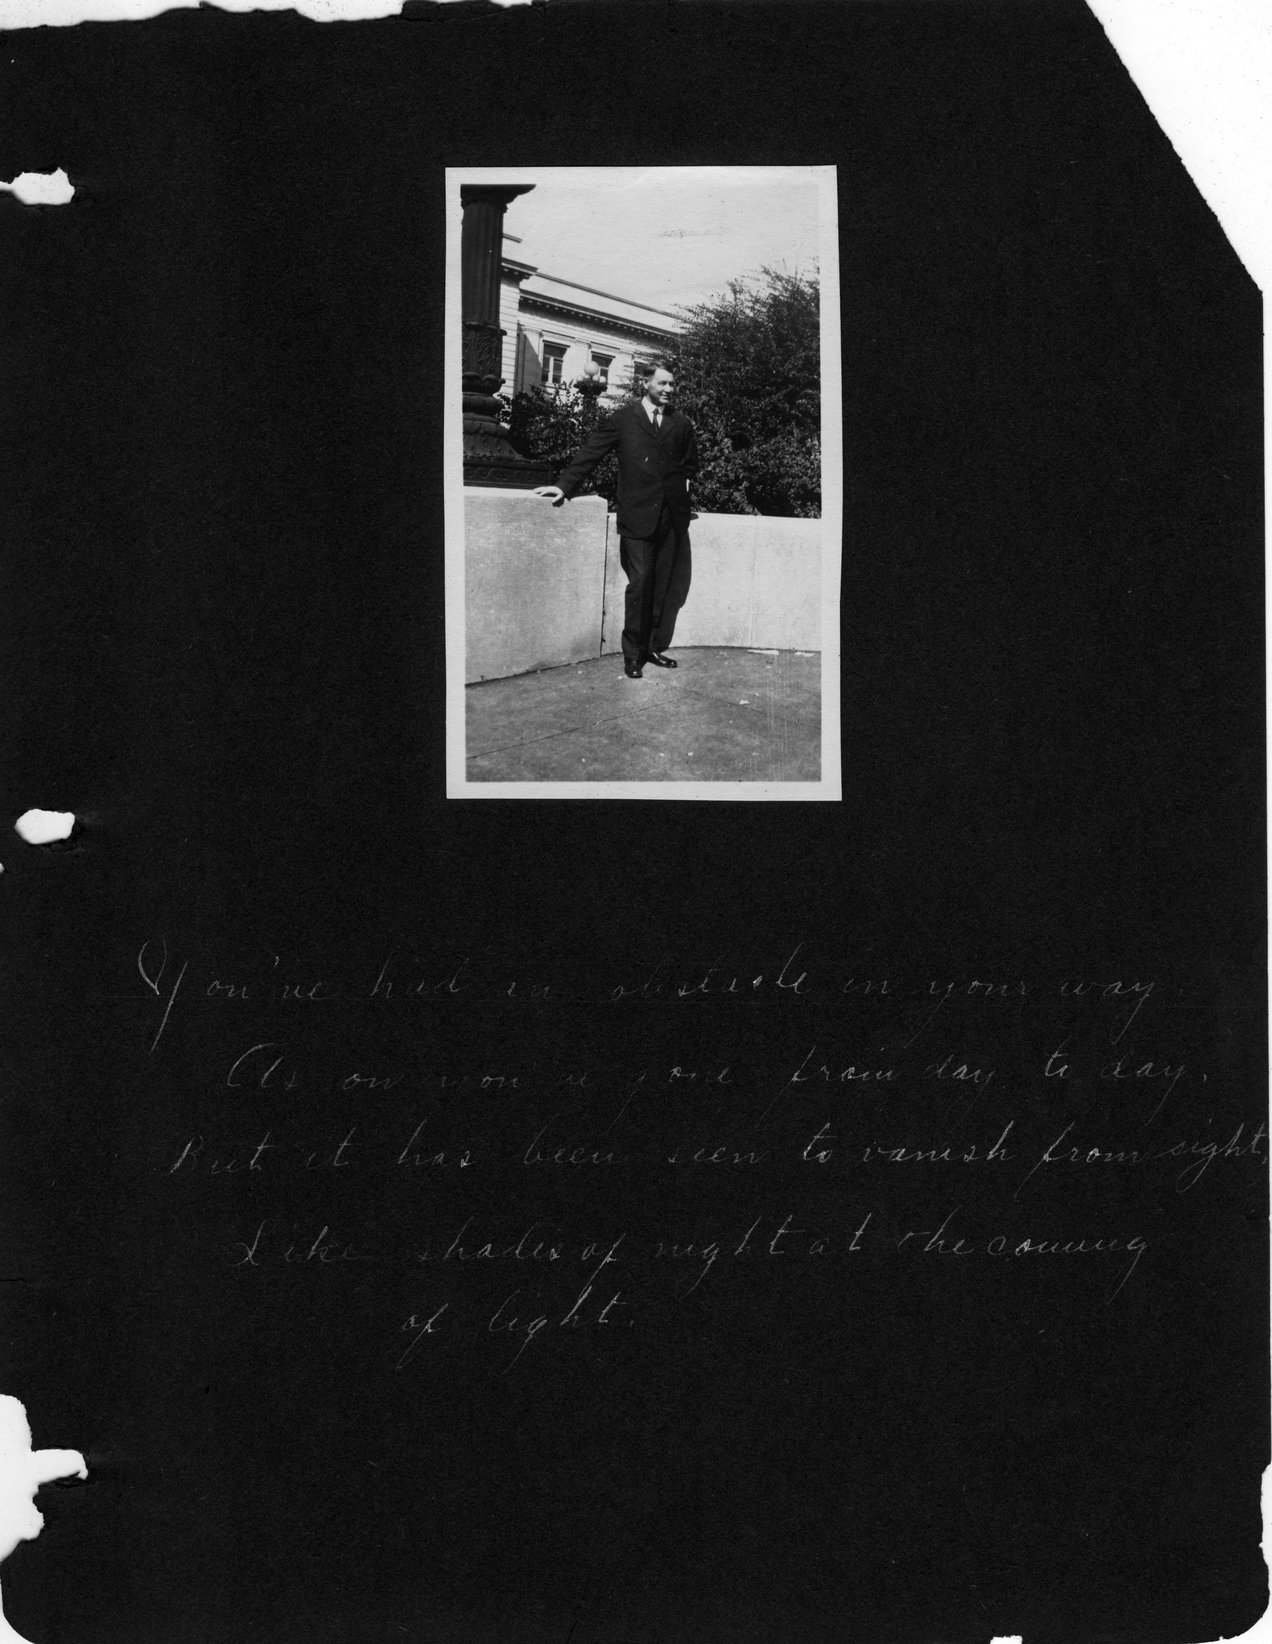 You've had an obstacle in your way
As on you've gone from day to day,
But it has been seen to vanish from sight,
Like shades of night at the coming
of light.